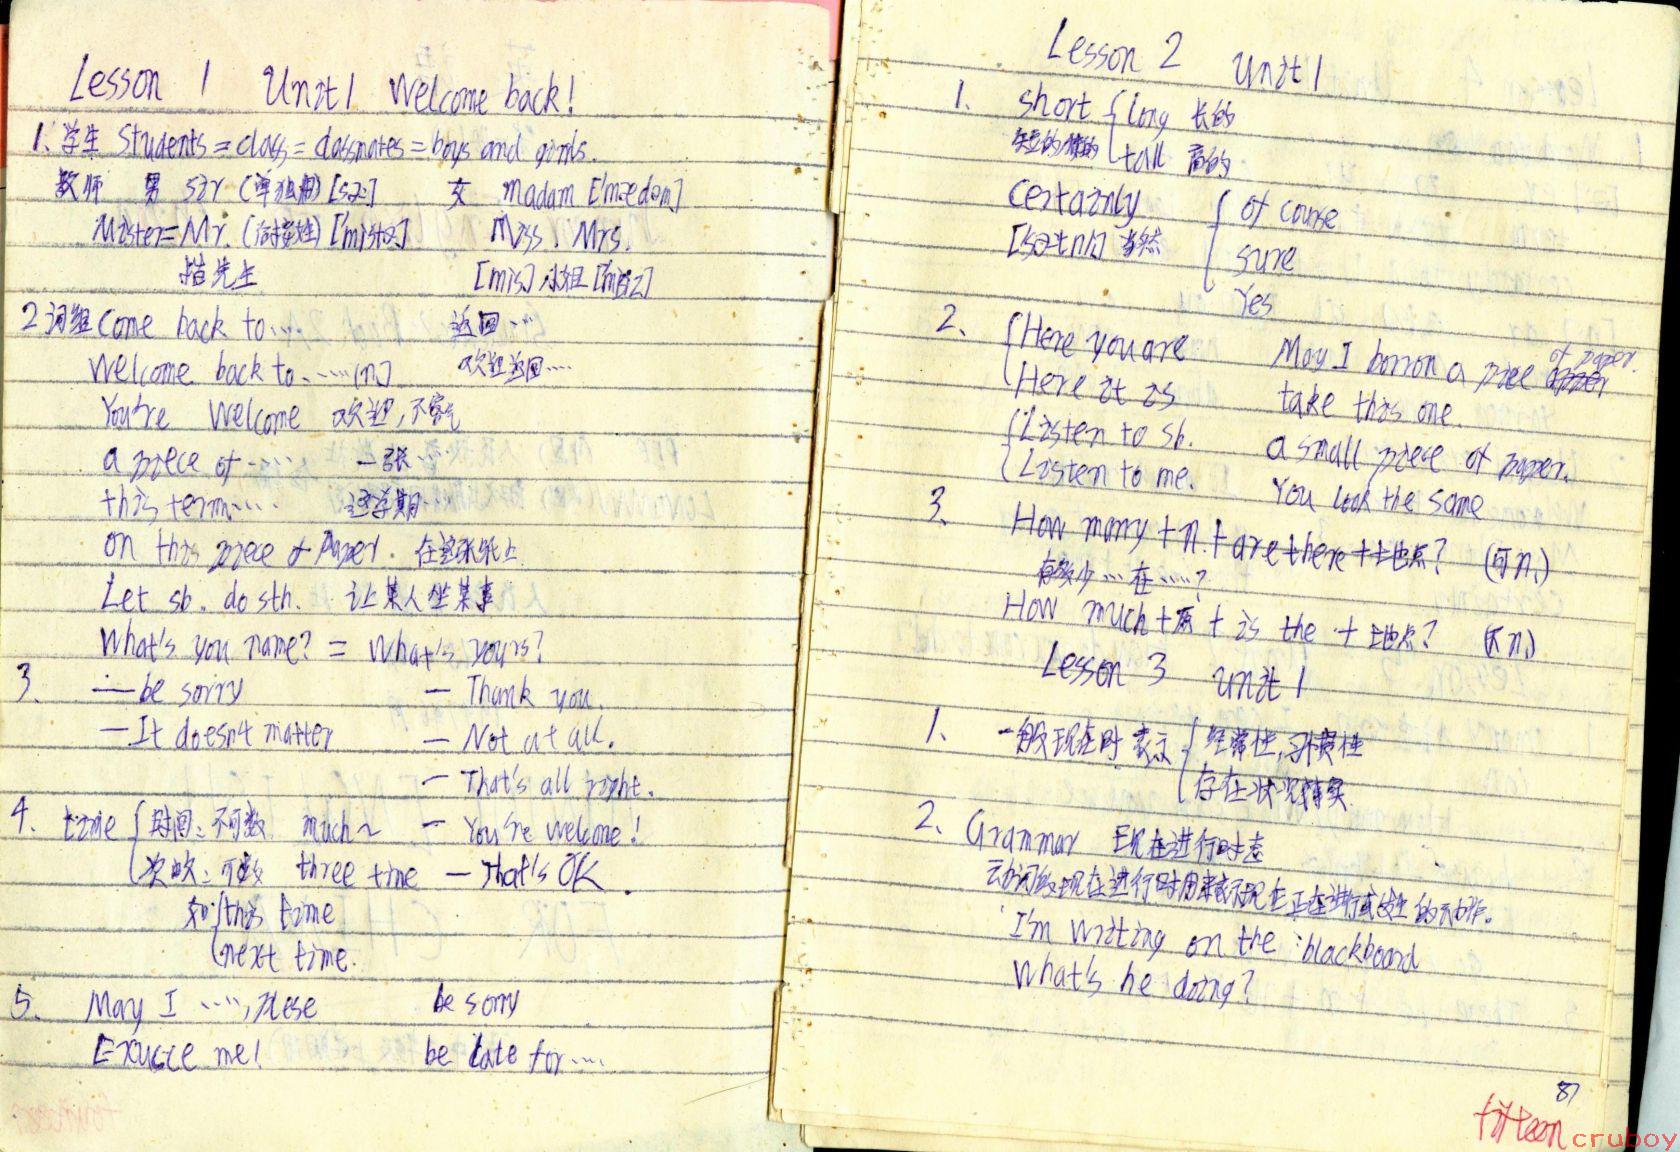 Lesson 1 Unit 1 Welcome back!
1. 学生 Students = class = classmates = boys and girls.
教师 男 sir (单独用) [sə:] 女 madam ['mædəm]
Mister = Mr. (后接姓) ['mistə] Miss. Mrs.
指先生 [mis] 小姐 [misiz]
2 词组 come back to.... 返回...
Welcome back to......[n] 欢迎返回....
You're welcome 欢迎,不客气
a piece of .... 一张...
this term.... 这学期
on this piece of Paper. 在这张纸上
Let sb. do sth. 让某人坐某事
What's you name? = What's yours?
3. — be sorry — Thank you.
— It doesn't matter — Not at all.
— That's all right.
4. time { 时间: 不可数 much~ — You're welcome!
次数: 可数 three time — That's OK.
如 { this time
next time.
5. May I ...., plese be sorry
Exucce me! be late for....
Lesson 2 Unit 1
1. short { long 长的
短的矮的 tall 高的
Certainly { of course
[sə:tnli] 当然 sure
Yes
2. { Here you are May I borron a piece of paper.
Here it is take this one.
{ Listen to sb. a small piece of paper.
Listen to me. You look the same
3. How many + n. + are there + 地点? (可n.)
有多少...在....?
How much + + is the + 地点? (不n.)
Lesson 3 Unit 1
1. 一般现在时 表示 { 经常性,习惯性
存在状况
2. Grammar 现在进行时态
动词的现在进行时用来表示现在正在进行或发生的动作。
I'm writing on the blackboard
What's he doing?
87
fifteen
cruboy